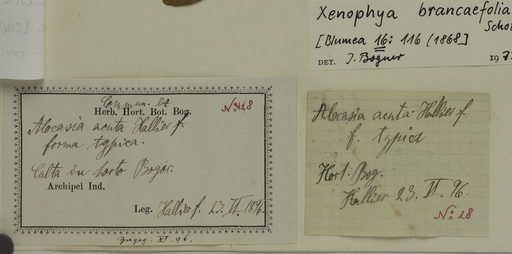 Xenophya brancaefolia
Schot
[Blumea 16: 116 (1868]
DET. J. Bogner 197
Commun. ex
Herb. Hort. Bot. Bog.
No 28
Alocasia acuta Hallier f.
forma typica.
Culta in horto Bogor.
Archipel Ind.
Leg. Hallier f. 23. VI. 1896.
XI. 96.
Alocasia acuta Hallier f.
f. typica
Hort. Bog.
Hallier 23. VI. 96.
No: 28